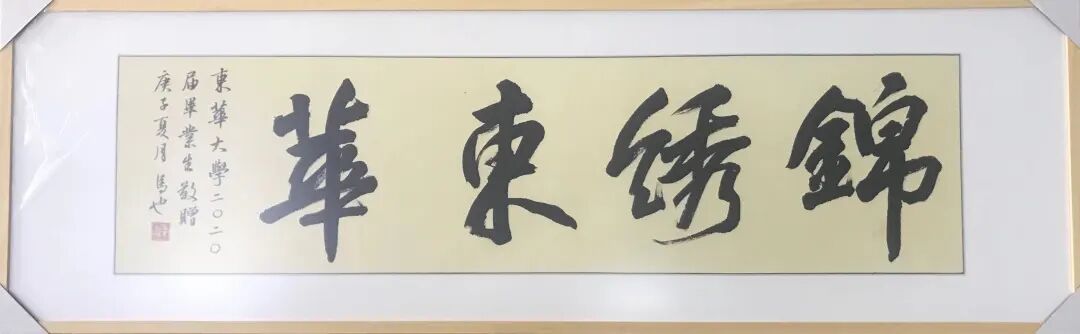 錦綉東華
東華大學二〇二〇
届畢業生敬贈
庚子夏月馬也